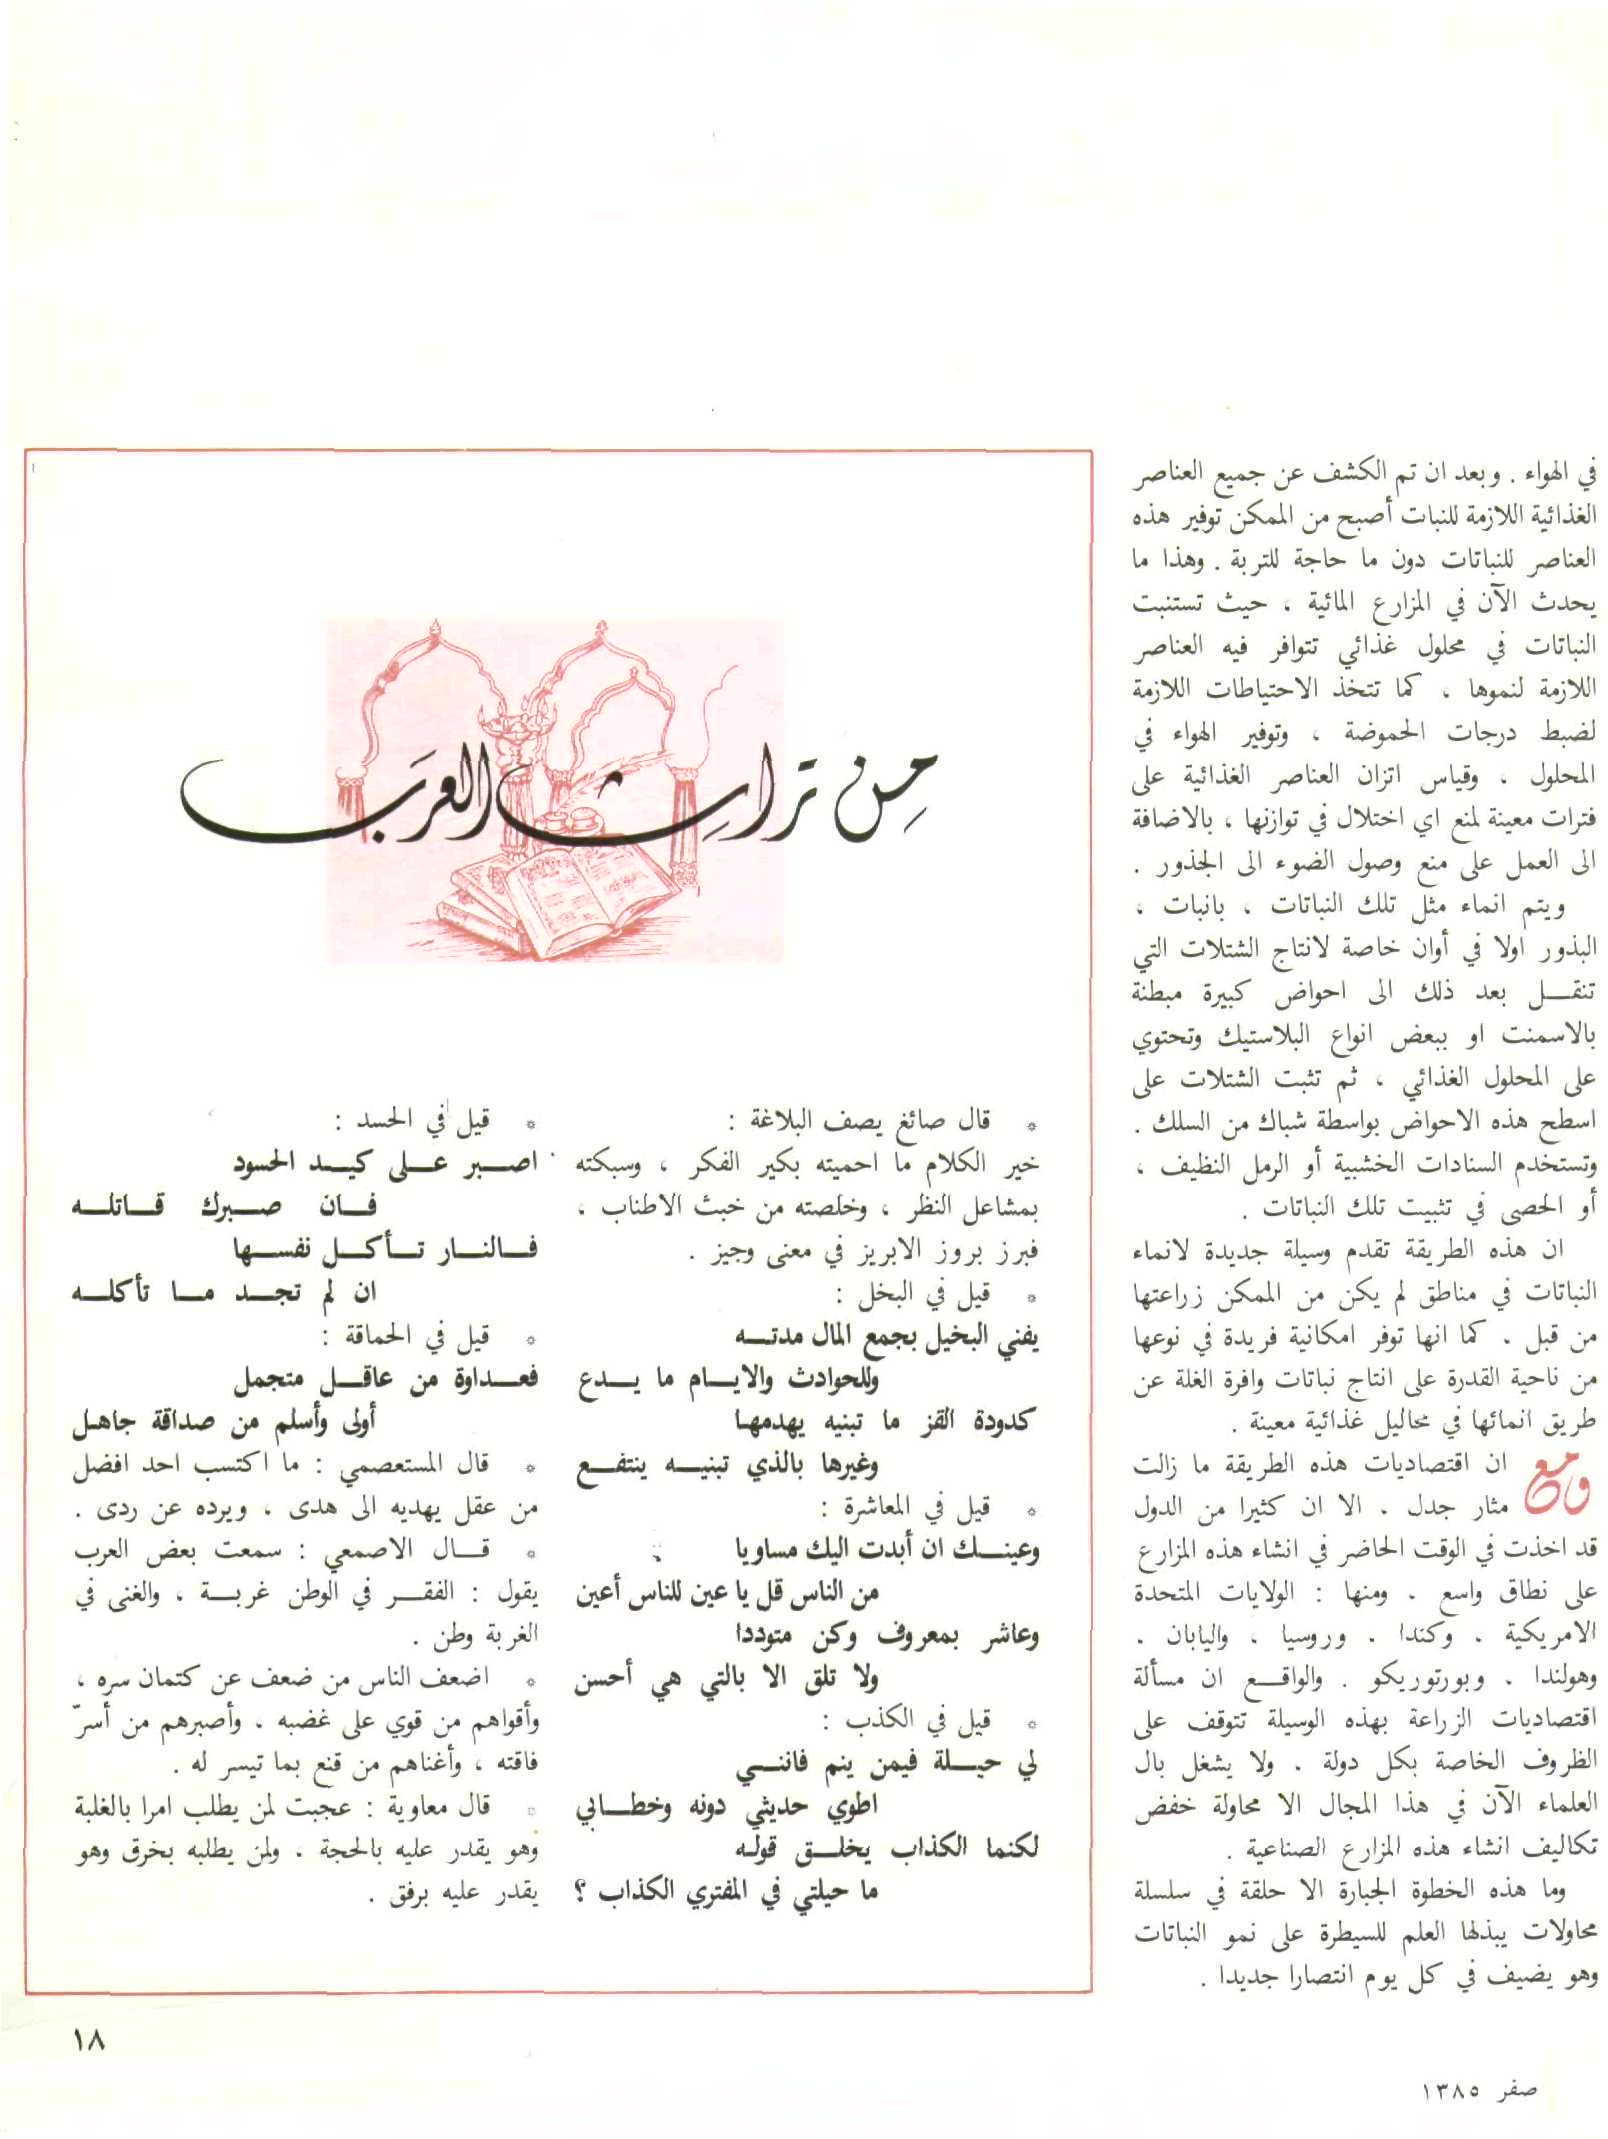 في الهواء . وبعد ان تم الكشف عن جميع العناصر
الغذائية اللازمة للنبات أصبح من الممكن توفير هذه
العناصر للنباتات دون ما حاجة للتربة . وهذا ما
يحدث الآن في المزارع المائية ، حيث تستنبت
النباتات في محلول غذائي تتوافر فيه العناصر
اللازمة لنموها ، كما تتخذ الاحتياطات اللازمة
لضبط درجات الحموضة ، وتوفير الهواء في
المحلول ، وقياس اتزان العناصر الغذائية على
فترات معينة لمنع اي اختلال في توازنها ، بالاضافة
الى العمل على منع وصول الضوء الى الجذور .
ويتم انماء مثل تلك النباتات ، بانبات ،
البذور اولا في أوان خاصة لانتاج الشتلات التي
تنقل بعد ذلك الى احواض كبيرة مبطنة
بالاسمنت او ببعض انواع البلاستيك وتحتوي
على المحلول الغذائي ، ثم تثبت الشتلات على
اسطح هذه الاحواض بواسطة شباك من السلك .
وتستخدم السنادات الخشبية أو الرمل النظيف ،
أو الحصى في تثبيت تلك النباتات .
ان هذه الطريقة تقدم وسيلة جديدة لانماء
النباتات في مناطق لم يكن من الممكن زراعتها
من قبل . كما انها توفر امكانية فريدة في نوعها
من ناحية القدرة على انتاج نباتات وافرة الغلة عن
طريق انمائها في محاليل غذائية معينة .
ومع ان اقتصاديات هذه الطريقة ما زالت
مثار جدل . الا ان كثيرا من الدول
قد اخذت في الوقت الحاضر في انشاء هذه المزارع
على نطاق واسع . ومنها : الولايات المتحدة
الامريكية . وكندا . وروسيا ، واليابان .
وهولندا . وبورتوريكو . والواقع ان مسألة
اقتصاديات الزراعة بهذه الوسيلة تتوقف على
الظروف الخاصة بكل دولة . ولا يشغل بال
العلماء الآن في هذا المجال الا محاولة خفض
تكاليف انشاء هذه المزارع الصناعية .
وما هذه الخطوة الجبارة الا حلقة في سلسلة
محاولات يبذلها العلم للسيطرة على نمو النباتات
وهو يضيف في كل يوم انتصارا جديدا .
مِن تراثِ العرَب
* قال صائغ يصف البلاغة :
خير الكلام ما احميته بكير الفكر ، وسبكته
بمشاعل النظر ، وخلصته من خبث الاطناب ،
فبرز بروز الابريز في معنى وجيز .
* قيل في البخل :
يفني البخيل بجمع المال مدته
وللحوادث والايام ما يدع
كدودة القز ما تبنيه يهدمها
وغيرها بالذي تبنيه ينتفع
* قيل في المعاشرة :
وعينك ان أبدت اليك مساويا
من الناس قل يا عين للناس أعين
وعاشر بمعروف وكن متوددا
ولا تلق الا بالتي هي أحسن
* قيل في الكذب :
لي حيلة فيمن ينم فانني
اطوي حديثي دونه وخطابي
لكنما الكذاب يخلق قوله
ما حيلتي في المفتري الكذاب ؟
* قيل في الحسد :
اصبر على كيد الحسود
فان صبرك قاتله
فالنار تأكل نفسها
ان لم تجد ما تأكله
* قيل في الحماقة :
فعداوة من عاقل متجمل
أولى وأسلم من صداقة جاهل
* قال المستعصمي : ما اكتسب احد افضل
من عقل يهديه الى هدى ، ويرده عن ردى .
* قال الاصمعي : سمعت بعض العرب
يقول : الفقر في الوطن غربة ، والغنى في
الغربة وطن .
* اضعف الناس من ضعف عن كتمان سره ،
وأقواهم من قوي على غضبه ، وأصبرهم من أسرّ
فاقته ، وأغناهم من قنع بما تيسر له .
* قال معاوية : عجبت لمن يطلب امرا بالغلبة
وهو يقدر عليه بالحجة ، ولمن يطلبه بخرق وهو
يقدر عليه برفق .
١٨
صفر ١٣٨٥